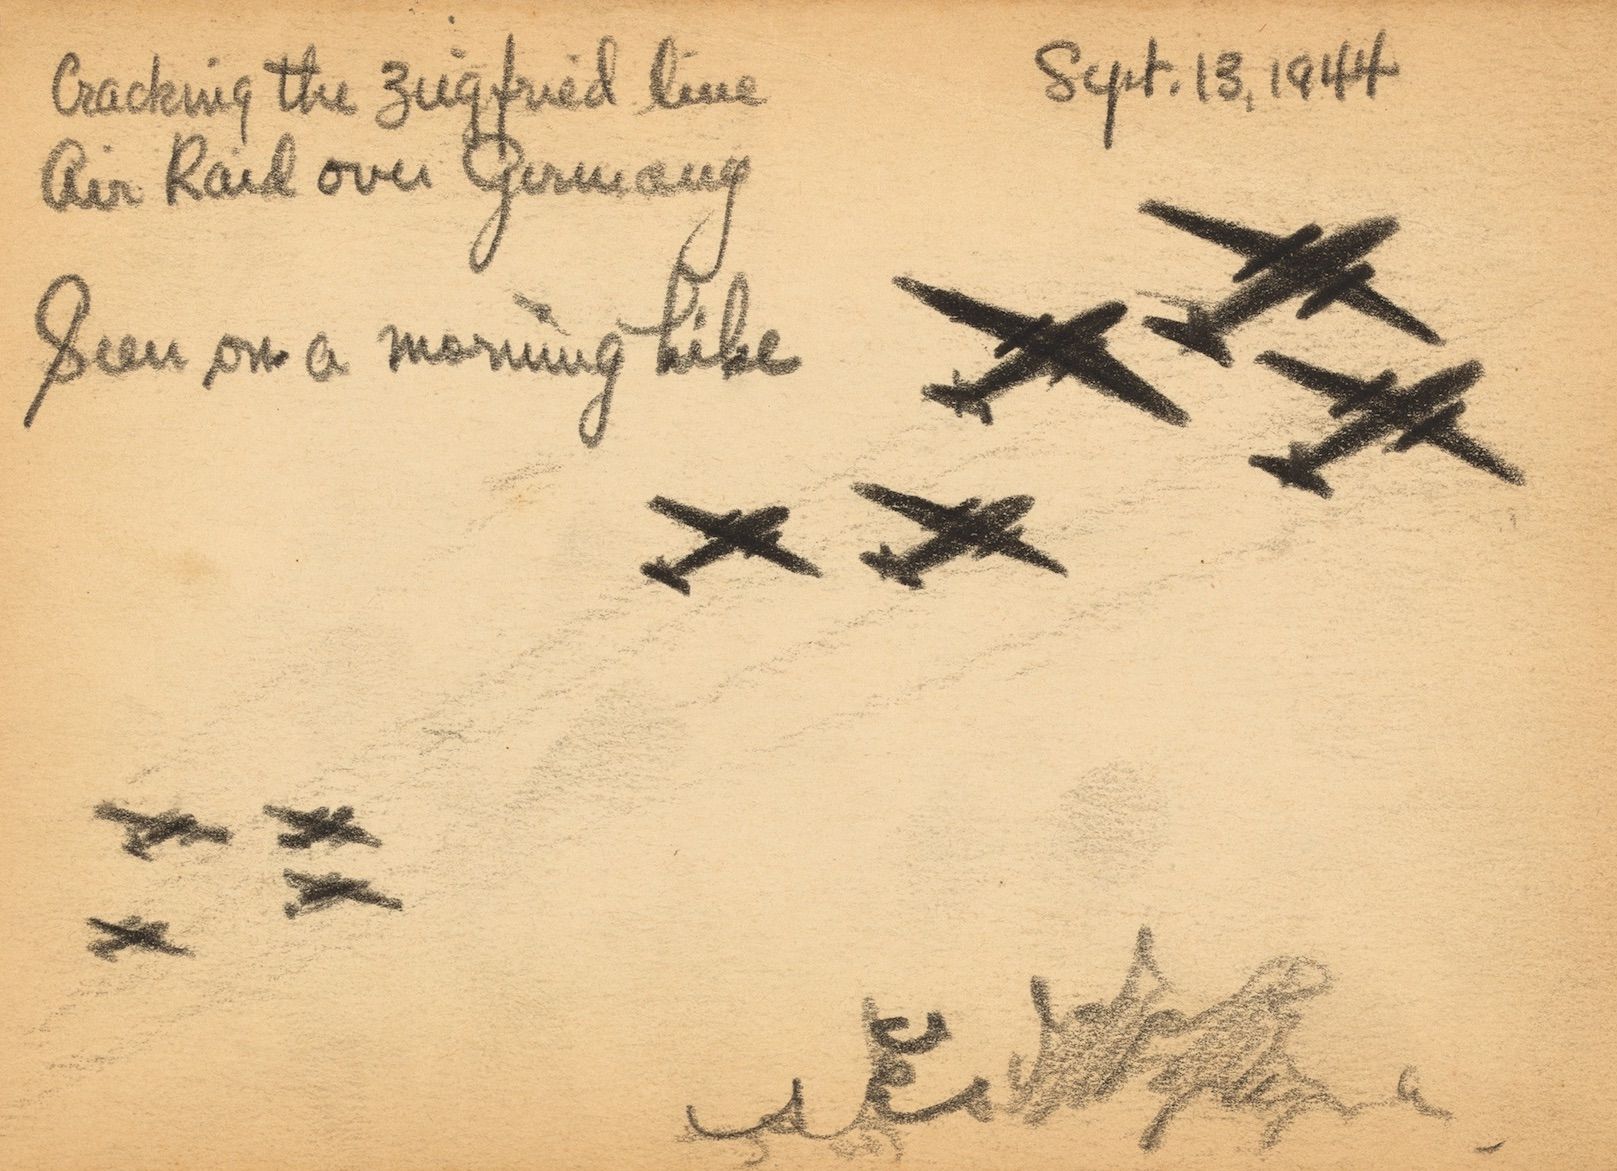 Cracking the Zeigfried line
Sept. 13, 1944
Air Raid over Germany
Seen on a morning hike